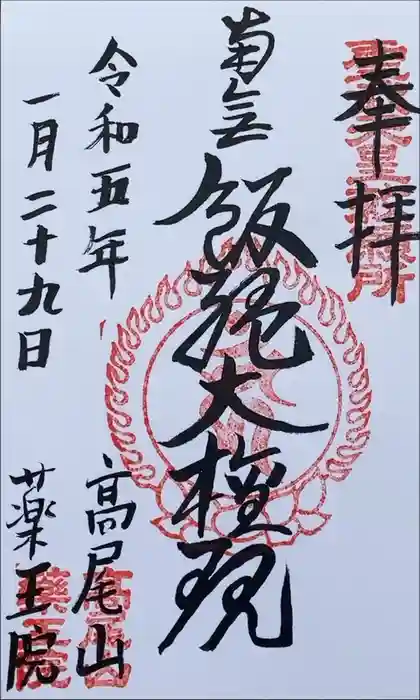 奉拝
南無
飯縄大権現
令和五年
一月二十九日
高尾山
薬王院